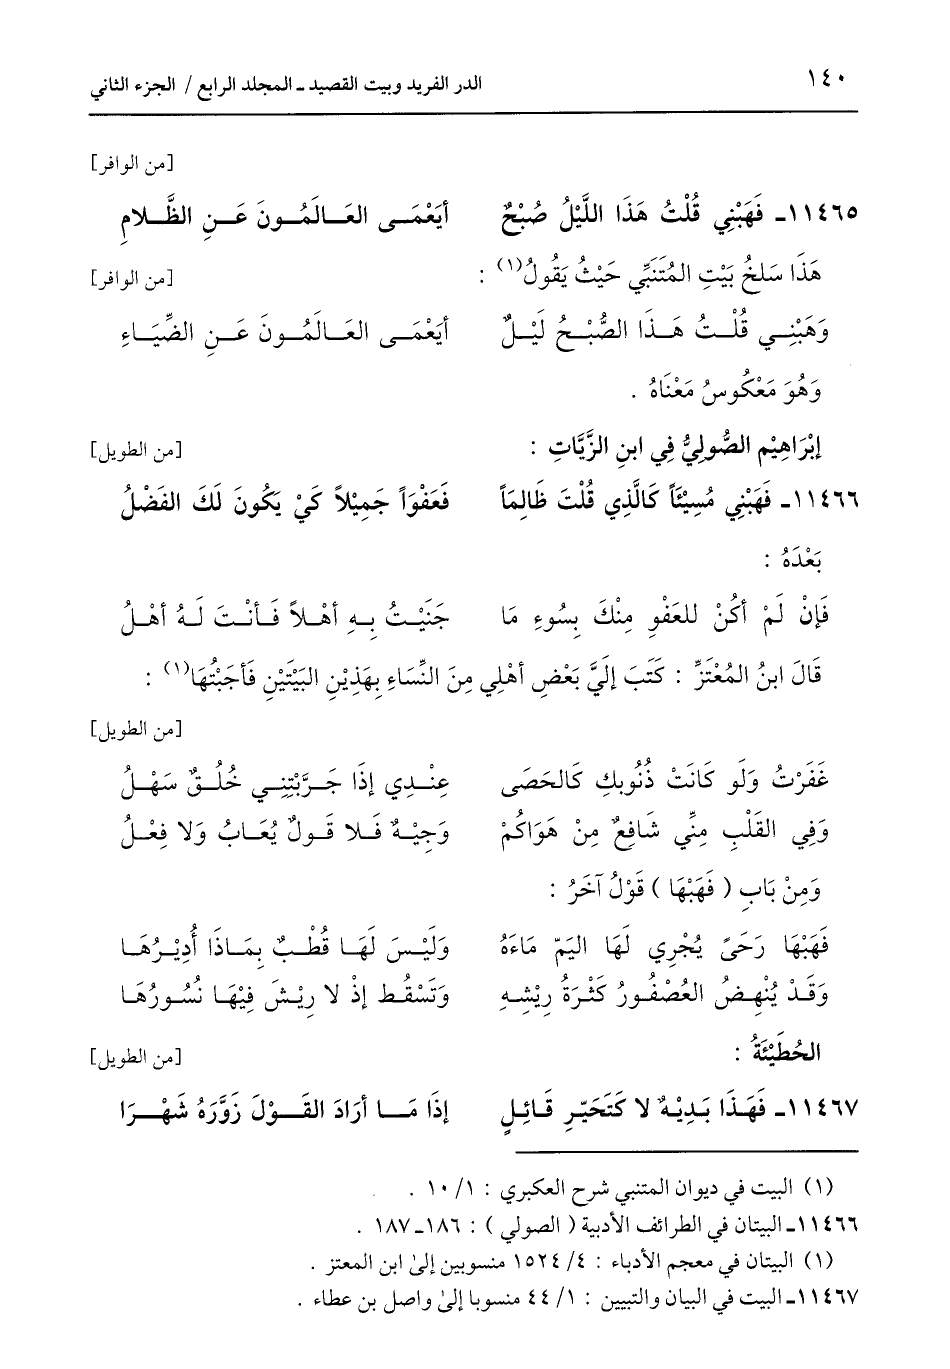 ١٤٠ الدر الفريد وبيت القصيد ـ المجلد الرابع / الجزء الثاني
[من الوافر]
١١٤٦٥ـ فَهَبْنِي قُلْتُ هَذَا اللَّيْلُ صُبْحٌ أيَعْمَــى العَــالَمُــونَ عَــنِ الظَّــلامِ
هَذَا سَلخُ بَيْتِ المُتَنَبِّي حَيْثُ يَقُولُ(١) : [من الوافر]
وَهَبْنِــي قُلْــتُ هَــذَا الصُّبْــحُ لَيْــلٌ أيَعْمَــى العَــالَمُــونَ عَــنِ الضِّيَــاءِ
وَهُوَ مَعْكُوسُ مَعْنَاهُ .
إبْرَاهِيْم الصُّولِيُّ فِي ابنِ الزَّيَّاتِ : [من الطويل]
١١٤٦٦ـ فَهَبْنِي مُسِيْئَاً كَالَّذِي قُلْتَ ظَالِمَاً فَعَفْوَاً جَمِيْلاً كَيْ يَكُونَ لَكَ الفَضْلُ
بَعْدَهُ :
فَإنْ لَمْ أكُنْ للعَفْوِ مِنْكَ بِسُوءِ مَا جَنَيْــتُ بِــهِ أهْــلاً فَــأنْــتَ لَــهُ أهْــلُ
قَالَ ابنُ المُعْتَزِّ : كَتَبَ إلَيَّ بَعْضِ أهْلِي مِنَ النِّسَاءِ بِهَذيْنِ البَيْتَيْنِ فَأجَبْتُهَا(١) :
[من الطويل]
غَفَرْتُ وَلَو كَانَتْ ذُنُوبكِ كَالحَصَى عِنْــدِي إذَا جَــرَّبْتِنِــي خُلُــقٌ سَهْــلُ
وَفِي القَلْبِ مِنِّي شَافِعٌ مِنْ هَوَاكُمْ وَجِيْــهٌ فَــلا قَــولٌ يُعَــابُ وَلا فِعْــلُ
وَمِنْ بَابِ ( فَهَبْهَا ) قَوْلُ آخَرُ :
فَهَبْهَا رَحَىً يُجْرِي لَهَا اليَمّ مَاءَهُ وَلَيْــسَ لَهَــا قُطْــبٌ بِمَــاذَا أُدِيْــرُهَــا
وَقَــدْ يُنْهِضُ العُصْفُــورُ كَثْــرَةُ رِيْشِــهِ وَتَسْقُــط إذْ لا رِيْــشَ فِيْهَــا نُسُــورُهَــا
الحُطَيْئَةُ : [من الطويل]
١١٤٦٧ـ فَهَــذَا بَــدِيْــهٌ لا كَتَحَيّــرِ قَــائِــلٍ إذَا مَــا أرَادَ القَــوْلَ زَوَّرَهُ شَهْــرَا
(١) البيت في ديوان المتنبي شرح العكبري : ١/ ١٠ .
١١٤٦٦ـ البيتان في الطرائف الأدبية ( الصولي ) : ١٨٦ـ ١٨٧ .
(١) البيتان في معجم الأدباء : ٤/ ١٥٢٤ منسوبين إلىٰ ابن المعتز .
١١٤٦٧ـ البيت في البيان والتبيين : ١/ ٤٤ منسوبا إلىٰ واصل بن عطاء .